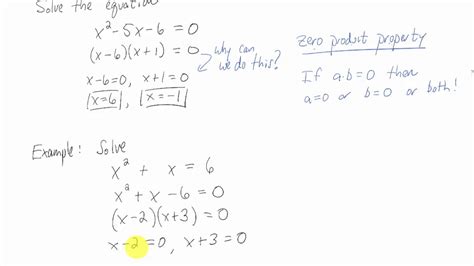 Solve the equation
x²-5x-6=0
(x-6)(x+1)=0
x-6=0, x+1=0
x=6, x=-1
why can
we do this?
Zero product property
If a·b=0 then
a=0 or b=0 or both!
Example: Solve
x² + x = 6
x² + x - 6 = 0
(x-2)(x+3) = 0
x-2=0, x+3=0